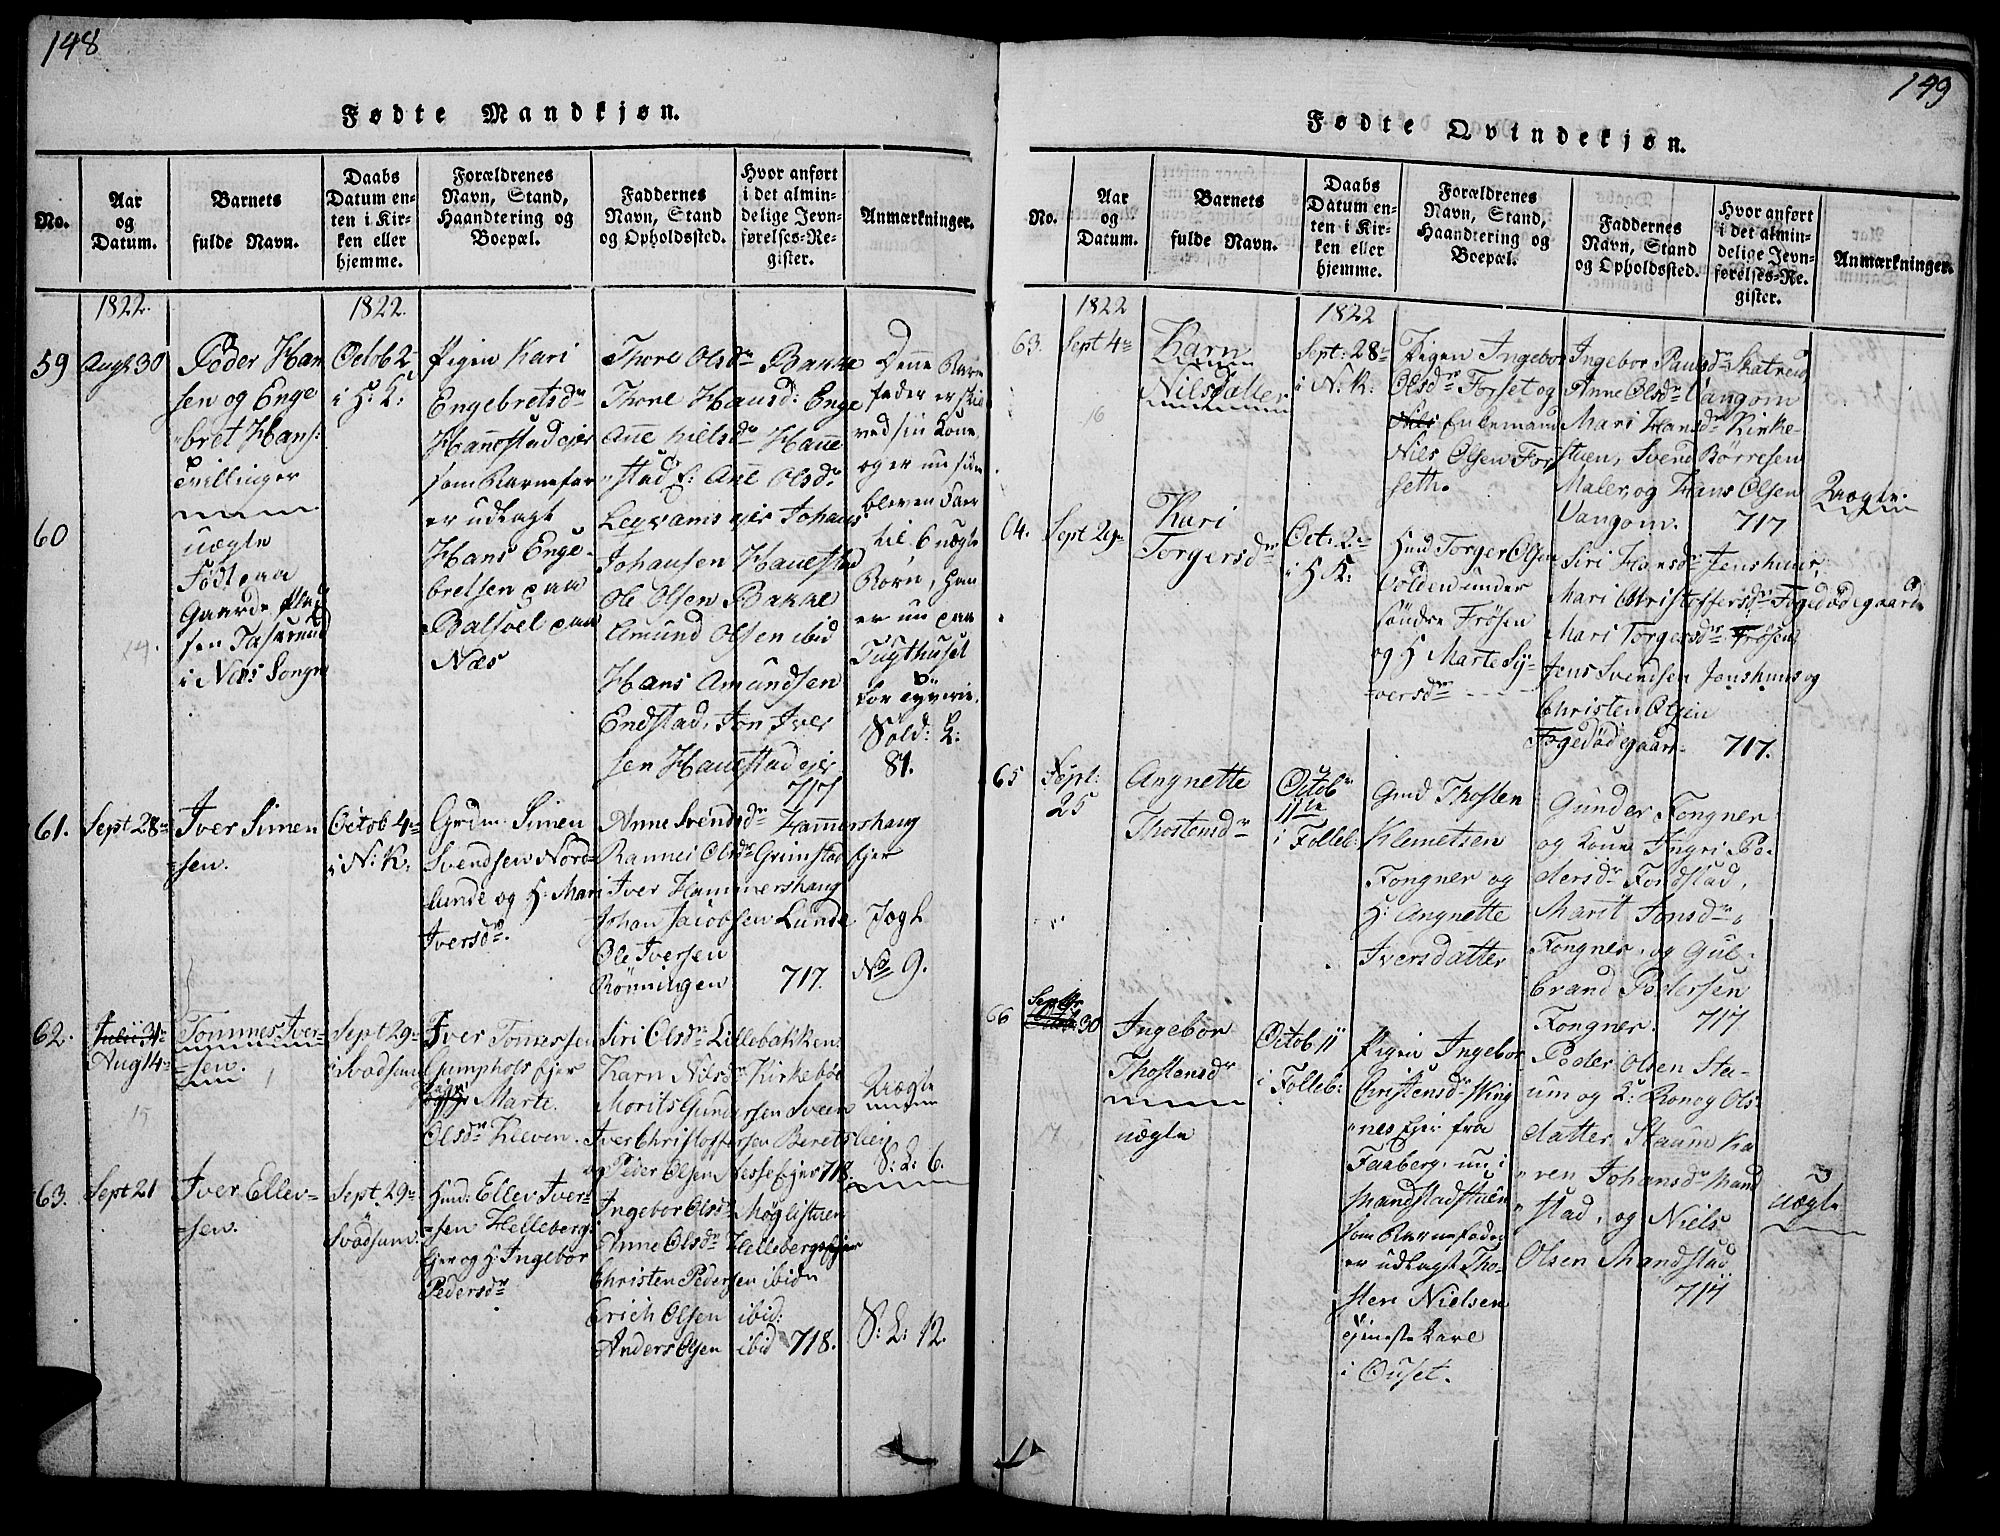 148
Fødte Mandkjøn.
No.
Aar
og
Datum.
Barnets
fulde Navn.
Daabs
Datum en-
ten i Kir-
ken eller
hjemme.
Forældrenes
Navn, Stand,
Haandtering og
Boepæl.
Faddernes
Navn, Stand
og Opholdssted.
Hvor anført
i det almin-
delige Jevn-
førelses-Re-
gister.
Anmærkninger.
1822.
1822.
59
Augt 30
Peder Han
sen og Enge
bret Hans:
tvillinger
uægte
Født paa
Gaarde
i Næs Songn
60
Octob 2
i H: K:
Pigen Kari
Engebretsdr
Hannestad ejer
som Barnefar
er udlagt
Hans Enge-
bretsen paa
paa
Næs
Thore Olsdr Bakke
Thore Hansd: Enge
Anne Nielsdr Hanne
stad E: Ane Olsdr
ejer Johans
Johansen Hannestad
Ole Olsen Bakke
Amund Olsen ibid
Hans Amundsen
Endstad, Jon Iver
sen Hannestad ejer
717
Denne Barne
fader er skil
ved sin Kone,
og er nu
bleven Faer
til 6 uægte
Børn, han
er nu paa
Tugthuset
for tyverie.
Sold: L:
81.
61.
Sept 28
Iver Simen
sen.
Octob 4
i N: K:
Grdm: Simen
Svendsen Nord-
lunde og H: Mari
Iversdr.
Anne Svendsdr Hammershaug
Rannei Olsdr Grimstad ejer
Iver Hammershaug
Johan Jacobsen Lunde
Ole Iversen
Rönningen 717.
Jægt
No 9.
62.
Aug 14
15
Tommes Iver-
sen.
Sept 29
Svadsum
Iver Tommessen
ejer
Marte
Olsdr Kleven.
Siri Olsdr Lillebakken:
Karn Nilsdr Kirkeböe
Morits Gundersen Sveen
Iver Christoffersen
og Peder Olsen ejer 718.
Uægte
S: L: 6.
63.
Sept 21
Iver Ellev-
sen.
Sept. 29
Svadsum.
Hmd: Ellev Iver-
sen Helleberg
Ejer og H: Ingebor
Pedersdr
Ingebor Olsdr Möglistuen
Anne Olsdr Helleberg ejer
Christen Pedersen ibidn
Erich Olsen ibid:
Anders Olsen ibid 718.
S: L: 12.
149
Fødte Qvindekjøn.
No.
Aar
og
Datum.
Barnets
fulde Navn.
Daabs
Datum en-
ten i Kir-
ken eller
hjemme.
Forældrenes
Navn, Stand,
Haandtering og
Boepæl.
Faddernes
Navn, Stand
og Opholdssted.
Hvor anført
i det almin-
delige Jevn-
førelses-Re-
gister.
Anmærkninger.
1822
1822
63
Sept 4
16
Karn
Nilsdatter
Sept: 28
i N: K:
Pigen Ingebor
Olsdr Forset og
Enkemand
Nils Olsen For
seth.
Ingebor Paulsdr Skatrud,
Anne Olsdr Vangom
Mari Hansdr Kirke-
stuen, Svend Börresen
Maler, og Hans Olsen
Vangom. 717
Uægte.
64.
Sept 29
Kari
Torgersdr
Oct. 2
i H K:
Hmd Torger Olsen
Volden under
söndre Frösen
og H Marte Sy-
versdr
Siri Hansdr Jenshuus,
Mari Christoffersdr Fogedödegaard
Mari Torgersdr Frösen
Jens Svendsen Jenshuus og
Christen Olsen
Fogedödegaard. 717.
65
Sept:
25
Angnette
Thostensdr
Octobr
11te
i Folleb:
Gmd Thosten
Klemetsen
Fongner og
H: Angnette
Iversdatter
Gunder Fongner
og Kone Ingri Pe-
dersdr Fondstad,
Marit Jonsdr
Fongner, og Gul-
brand Pedersen
Fongner. 717
66
Septbr
30
17
Ingebor
Thostensdr
uægte
Octob 11
i Folleb:
Pigen Ingebor
Christensdr Wing
nes Ejer fra
Faaberg, nu i
Mandstadstuen
som Barnefader
er udlagt Tho-
sten Nielsen
tjeneste Karl
i Ouset.
Peder Olsen Sta-
um og K: Roney Ols-
datter Staum Ka
ren Johansdr Mand
stad, og Niels
Olsen Mandstad
717
uægte